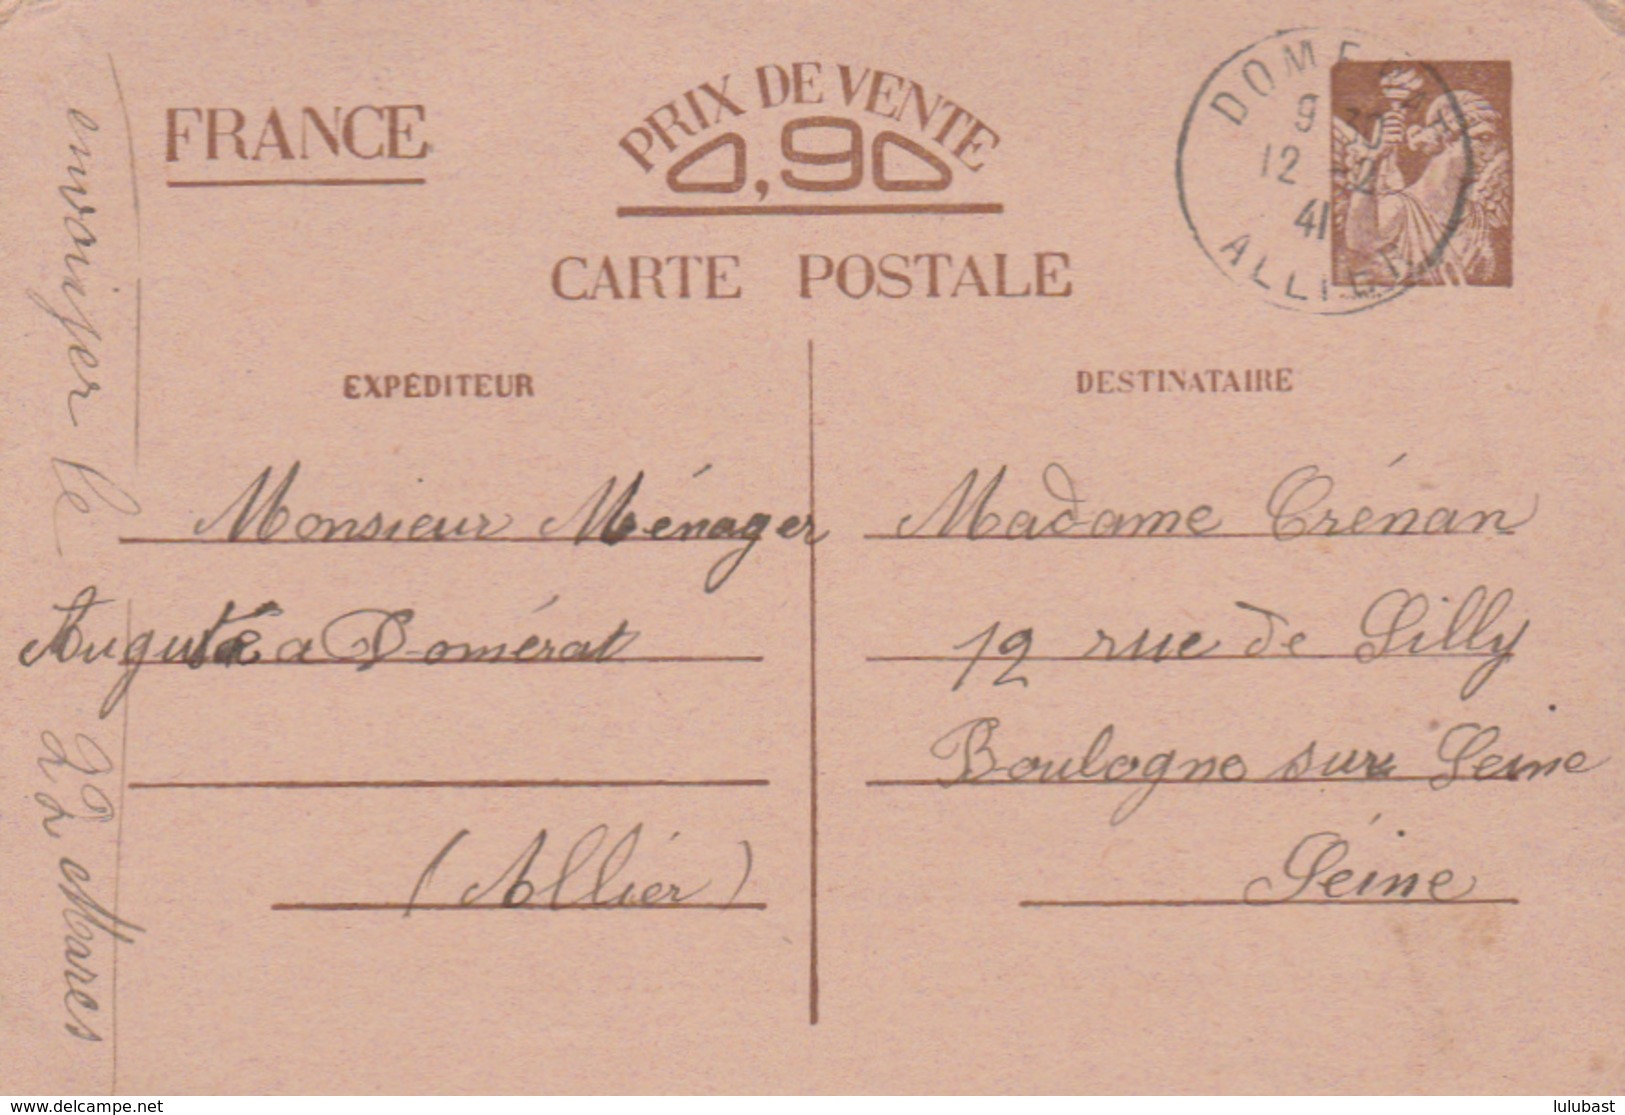 FRANCE
PRIX DE VENTE
0,90
CARTE POSTALE
DOMÉRAT
9 30
12 -2
41
ALLIER
EXPÉDITEUR
Monsieur Ménager
Auguste a Domérat
(Allier)
DESTINATAIRE
Madame Crénan
12 rue de Silly
Boulogne sur Seine
Seine
le
22 Mares
www.delcampe.net
lulubast